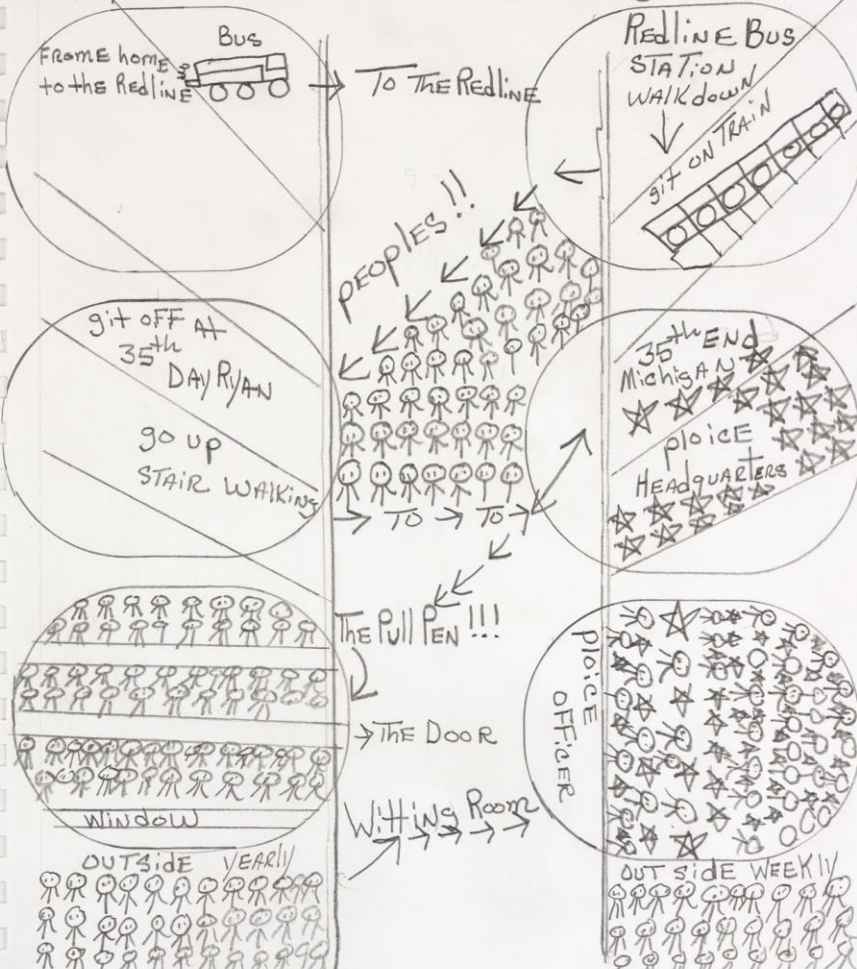 FROME home
to the Redline
BUS
TO THE Redline
Redline BUS
STATION
WALKDOWN
git ON TRAIN
PEOPLES!!
git OFF At
35th
DAY RYAN
go up
STAIR WALKING
35th END
MichigAN
ploice
HEADQUARTERS
TO TO
The Pull PEN!!!
The DOOR
WINDOW
Witting Room
ploice
OFFicER
OUTSide YEARly
OUT side WEEKly